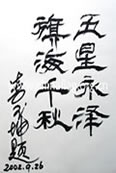 五星永泽
旗海千秋
题
2002.9.26